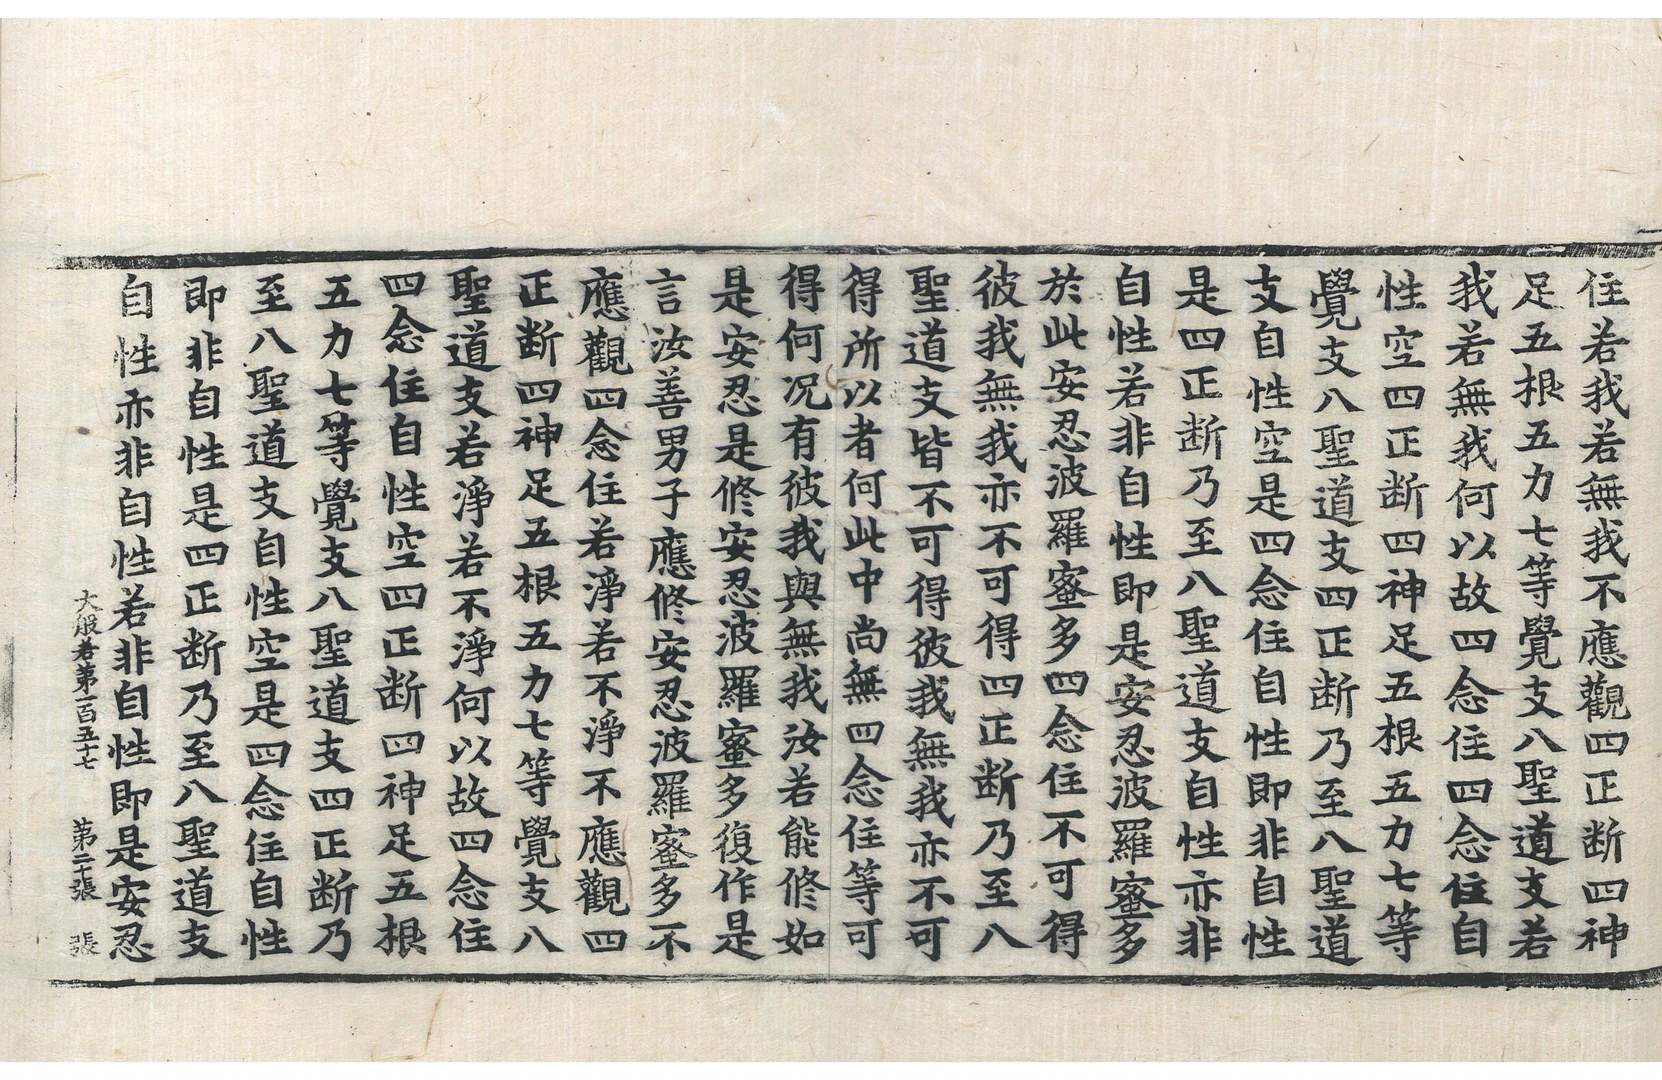 住若我若無我不應觀四正断四神
足五根五力七等覺支八聖道支若
我若無我何以故四念住四念住自
性空四正断四神足五根五力七等
覺支八聖道支四正断乃至八聖道
支自性空是四念住自性即非自性
是四正断乃至八聖道支自性亦非
自性若非自性即是安忍波羅蜜多
於此安忍波羅蜜多四念住不可得
彼我無我亦不可得四正断乃至八
聖道支皆不可得彼我無我亦不可
得所以者何此中尚無四念住等可
得何况有彼我與無我汝若能修如
是安忍是修安忍波羅蜜多復作是
言汝善男子應修安忍波羅蜜多不
應觀四念住若淨若不淨不應觀四
正断四神足五根五力七等覺支八
聖道支若淨若不淨何以故四念住
四念住自性空四正断四神足五根
五力七等覺支八聖道支四正断乃
至八聖道支自性空是四念住自性
即非自性是四正断乃至八聖道支
自性亦非自性若非自性即是安忍
大般若第一百五十七 第二十張 張